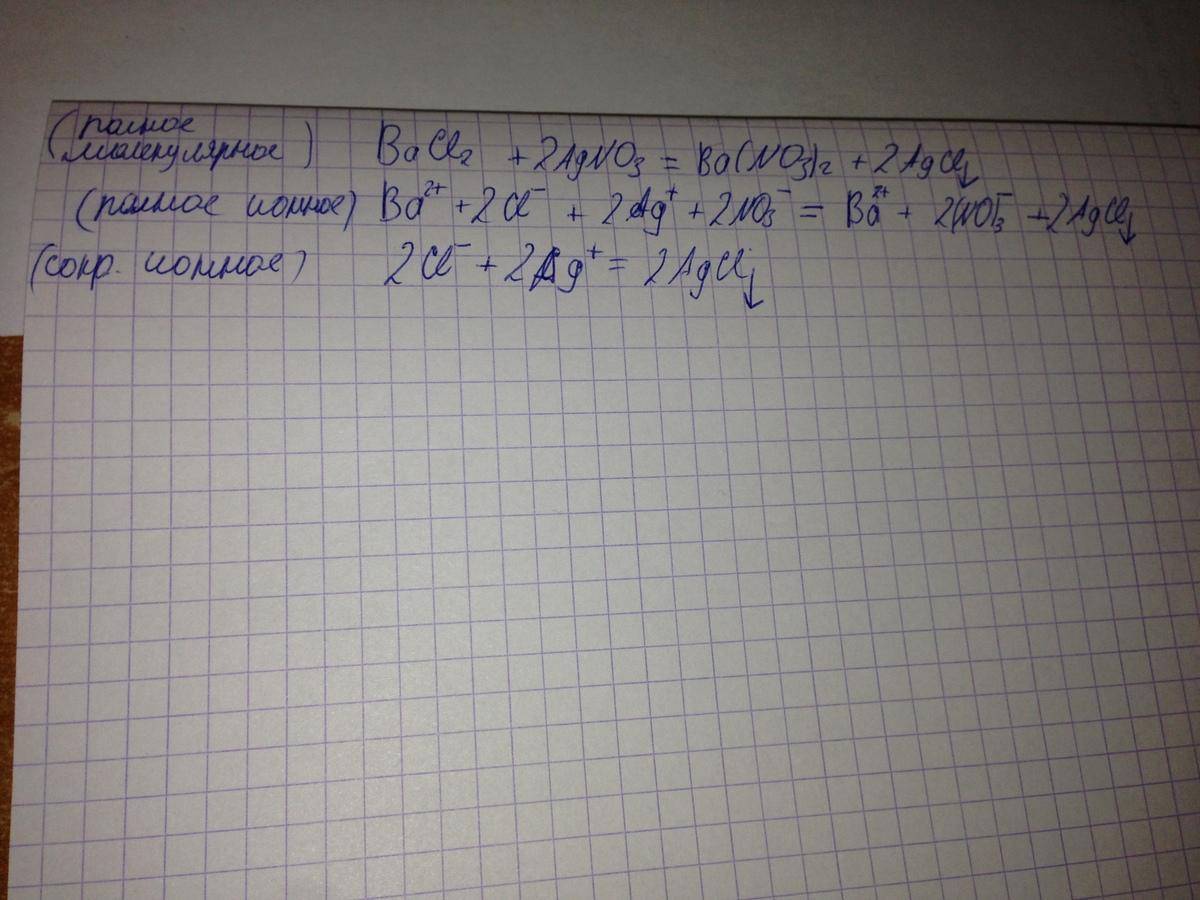 (полное
молекулярное) BaCl₂ + 2AgNO₃ = Ba(NO₃)₂ + 2AgCl↓
(полное ионное) Ba²⁺ + 2Cl⁻ + 2Ag⁺ + 2NO₃⁻ = Ba²⁺ + 2NO₃⁻ + 2AgCl↓
(сокр. ионное) 2Cl⁻ + 2Ag⁺ = 2AgCl↓